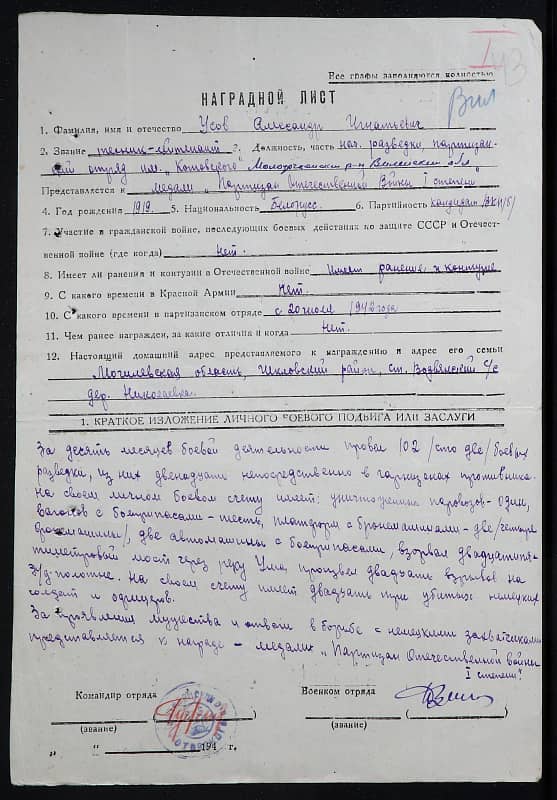 I
43
Все графы заполняются полностью
Вил
НАГРАДНОЙ ЛИСТ
1. Фамилия, имя и отчество Усов Александр Игнатьевич
2. Звание техник-лейтенант 3. Должность, часть нач. разведки, партизан-
ский отряд им. "Котовского" Молодечненский р-н Вилейской обл.
Представляется к медали "Партизан Отечественной Войны I степени"
4. Год рождения 1919. 5. Национальность Белорусс. 6. Партийность кандидат ВКП/б/
7. Участие в гражданской войне, последующих боевых действиях по защите СССР и Отечест-
венной войне (где когда) Нет.
8. Имеет ли ранения и контузии в Отечественной войне Имеет ранение и контузию
9. С какого времени в Красной Армии Нет.
10. С какого времени в партизанском отряде с 20 июля 1942 года
11. Чем ранее награжден, за какие отличия и когда Нет.
12. Настоящий домашний адрес представляемого к награждению и адрес его семьи
Могилевская область, Шкловский район, ст. с/с
дер. Николаевка.
1. КРАТКОЕ ИЗЛОЖЕНИЕ ЛИЧНОГО БОЕВОГО ПОДВИГА ИЛИ ЗАСЛУГИ
За десять месяцев боевой деятельности провел 102 /сто две/ боевых
разведки, из них двенадцать непосредственно в гарнизонах противника.
На своем личном боевом счету имеет: уничтоженных паровозов - один,
вагонов с боеприпасами - шесть, платформ с бронемашинами - две /четыре
бронемашины/, две автомашины с боеприпасами, взорвал двадцатипя-
тиметровый мост через реку Уша, произвел двадцать взрывов на
ж/д полотне. На своем счету имеет двадцать три убитых немецких
солдат и офицеров.
За проявления мужества и отваги в борьбе с немецкими захватчиками
представляется к награде - медали "Партизан Отечественной войны
I степени".
Командир отряда
Военком отряда
(звание)
(звание)
" " 194 г.